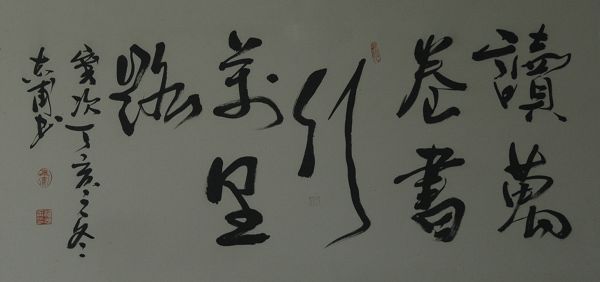 讀萬
卷書
行
萬里
路
歲次丁亥之冬
书